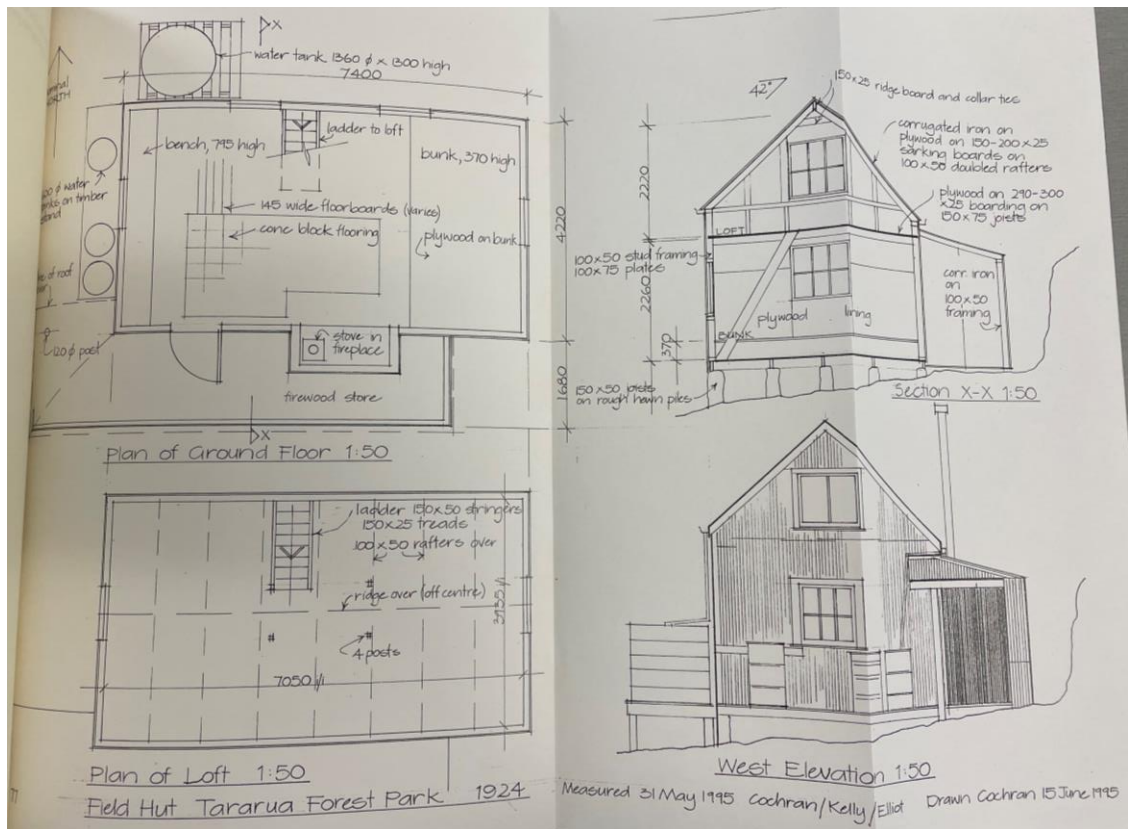 X
water tank 1360 ϕ x 1300 high
7400
NORTH
ladder to loft
bench, 795 high
bunk, 370 high
ϕ water
on timber
145 wide floorboards (varies)
conc block flooring
plywood on bunk
4220
of roof
120 ϕ post
stove in
fireplace
firewood store
1680
X
Plan of Ground Floor 1:50
ladder 150x50 stringers
150x25 treads
100x50 rafters over
ridge over (off centre)
3935
4 posts
7050
Plan of Loft 1:50
Field Hut Tararua Forest Park 1924
42°
150x25 ridge board and collar ties
corrugated iron on
plywood on 150-200x25
sarking boards on
100x50 doubled rafters
2220
plywood on 290-300
x25 boarding on
150x75 joists
LOFT
100x50 stud framing
100x75 plates
2260
corr. iron
on
100x50
framing
plywood lining
BUNK
370
150x50 joists
on rough hewn piles
Section X-X 1:50
West Elevation 1:50
Measured 31 May 1995 Cochran/Kelly/Elliot Drawn Cochran 15 June 1995